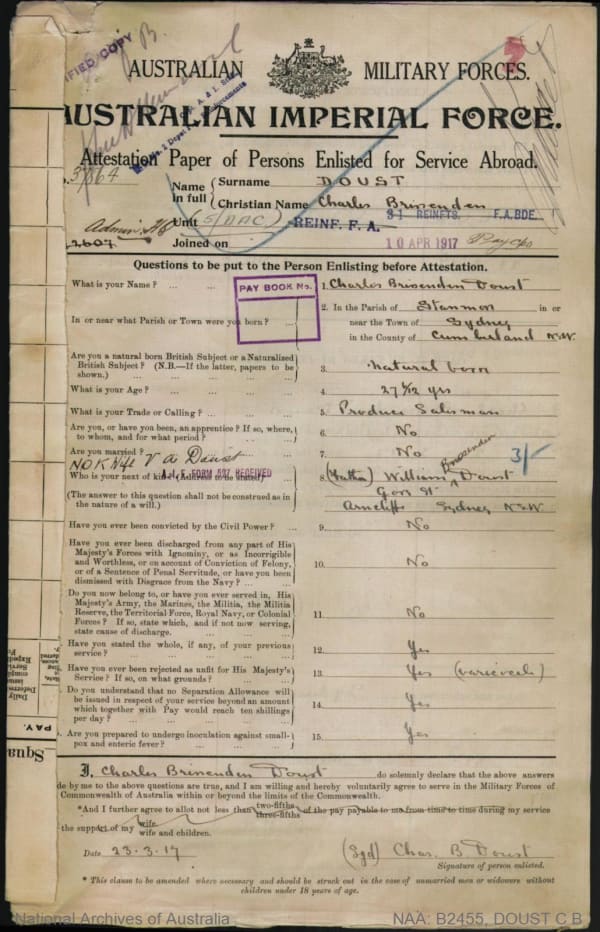 CERTIFIED COPY
AUSTRALIAN MILITARY FORCES.
AUSTRALIAN IMPERIAL FORCE.
Attestation Paper of Persons Enlisted for Service Abroad.
37864
Name in full { Surname DOUST
Christian Name Charles Brinenden
Unit 5/DAC) REINF. F. A. 31 REINFTS. F.A.BDE.
Admin. Hd
2607
Joined on 10 APR 1917
Questions to be put to the Person Enlisting before Attestation.
PAY BOOK No.
What is your Name? ... ... 1. Charles Brinenden Doust
In or near what Parish or Town were you born? ... 2. In the Parish of Stanmore in or
near the Town of Sydney
in the County of Cumberland N.S.W.
Are you a natural born British Subject or a Naturalized
British Subject? (N.B.—If the latter, papers to be
shown.) ... ... 3. Natural born
What is your Age? ... ... 4. 27 1/12 yrs
What is your Trade or Calling? ... ... 5. Produce Salesman
Are you, or have you been, an apprentice? If so, where,
to whom, and for what period? ... 6. No
Are you married? ... 7. No
3/-
NOK Wife V A Doust
A.I.F. FORM 527 RECEIVED
Who is your next of kin? (Address to be stated)
8. (Father) William Brinenden Doust
(The answer to this question shall not be construed as in
the nature of a will.)
Arncliffe Sydney N.S.W.
Have you ever been convicted by the Civil Power? ... 9. No
Have you ever been discharged from any part of His
Majesty's Forces with Ignominy, or as Incorrigible
and Worthless, or on account of Conviction of Felony,
or of a Sentence of Penal Servitude, or have you been
dismissed with Disgrace from the Navy? ... 10. No
Do you now belong to, or have you ever served in, His
Majesty's Army, the Marines, the Militia, the Militia
Reserve, the Territorial Force, Royal Navy, or Colonial
Forces? If so, state which, and if not now serving,
state cause of discharge. ... 11. No
Have you stated the whole, if any, of your previous
service? ... ... 12. Yes
Have you ever been rejected as unfit for His Majesty's
Service? If so, on what grounds? ... 13. Yes (varicocele)
Do you understand that no Separation Allowance will
be issued in respect of your service beyond an amount
which together with Pay would reach ten shillings
per day? ... ... 14. Yes
Are you prepared to undergo inoculation against small-
pox and enteric fever? ... ... 15. Yes
I, Charles Brinenden Doust do solemnly declare that the above answers
made by me to the above questions are true, and I am willing and hereby voluntarily agree to serve in the Military Forces of
Commonwealth of Australia within or beyond the limits of the Commonwealth.
*And I further agree to allot not less than two-fifths three-fifths of the pay payable to me from time to time during my service
the support of my wife wife and children.
Date 23.3.17 (Sgd) Chas. B Doust
Signature of person enlisted.
* This clause to be amended where necessary and should be struck out in the case of unmarried men or widowers without
children under 18 years of age.
PAY.
Squa
National Archives of Australia
NAA: B2455, DOUST C B